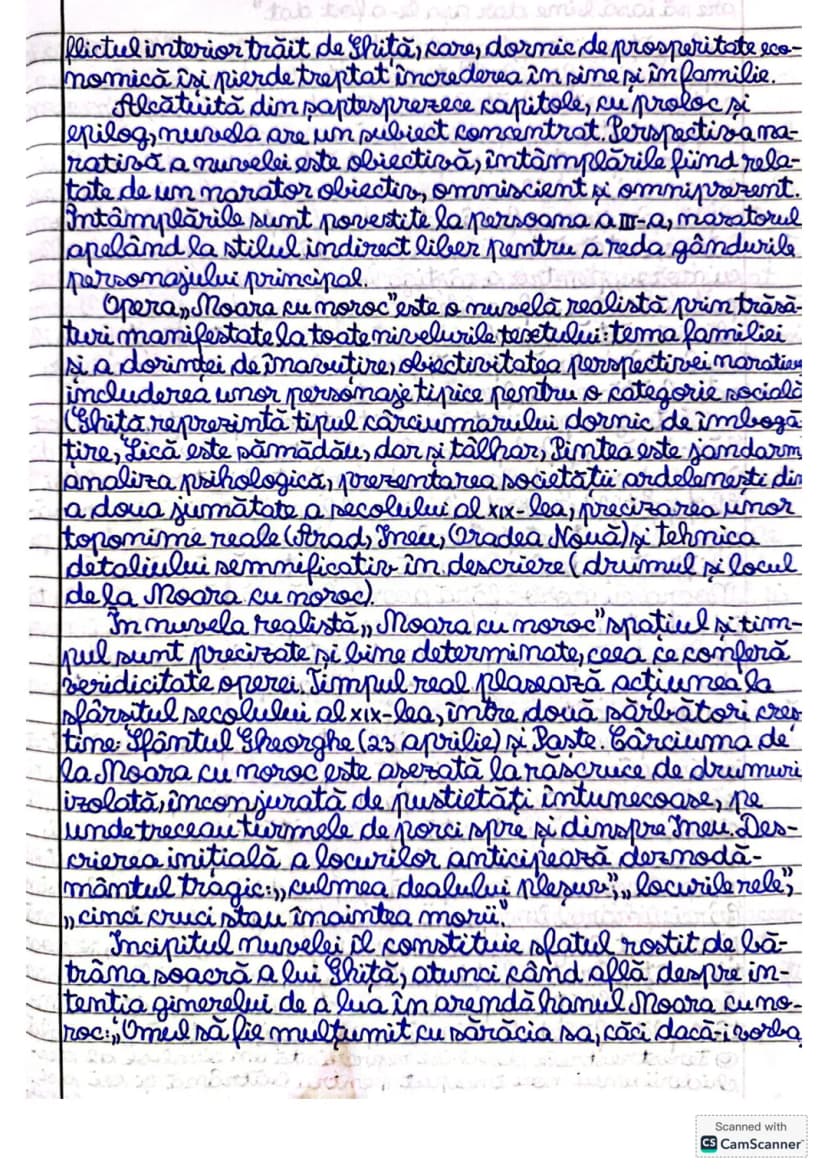 flictul interior trăit de Ghiță, care, dornic de prosperitate eco-
nomică își pierde treptat încrederea în sine și în familie.
Alcătuită din șaptesprezece capitole, cu proloc și
epilog, nuvela are un subiect concentrat. Perspectiva na-
rativă a nuvelei este obiectivă, întâmplările fiind rela-
tate de un narator obiectiv, omniscient și omniprezent.
Întâmplările sunt povestite la persoana a III-a, naratorul
apelând la stilul indirect liber pentru a reda gândurile
personajului principal.
Opera „Moara cu noroc" este o nuvelă realistă prin trăsă-
turi manifestate la toate nivelurile textului: tema familiei
și a dorinței de înavuțire, obiectivitatea perspectivei narative
includerea unor personaje tipice pentru o categorie socială
(Ghiță reprezintă tipul cârciumarului dornic de îmbogă
țire, Lică este sămădău, dar și tâlhar, Pintea este jandarm
analiza psihologică, prezentarea societății ardelenești din
a doua jumătate a secolului al XIX-lea, precizarea unor
toponime reale (Arad, Ineu, Oradea Nouă) și tehnica
detaliului semnificativ în descriere (drumul și locul
de la Moara cu noroc).
În nuvela realistă „Moara cu noroc" spațiul și tim-
pul sunt precizate și bine determinate, ceea ce conferă
veridicitate operei. Timpul real plasează acțiunea la
sfârșitul secolului al XIX-lea, între două sărbători creș
tine: Sfântul Gheorghe (23 aprilie) și Paște. Cârciuma de
la Moara cu noroc este așezată la răscruce de drumuri
izolată, înconjurată de pustietăți întunecoase, pe
unde treceau turmele de porci spre și dinspre Ineu. Des-
crierea inițială a locurilor anticipează deznodă-
mântul tragic: „culmea dealului pleșuv", „locurile rele",
„cinci cruci stau înaintea morii".
Incipitul nuvelei îl constituie sfatul rostit de bă-
trâna soacră a lui Ghiță, atunci când află despre in-
tentia ginerelui de a lua în arendă hanul Moara cu no-
roc: „Omul să fie mulțumit cu sărăcia sa, căci dacă-i vorba
Scanned with
CS CamScanner